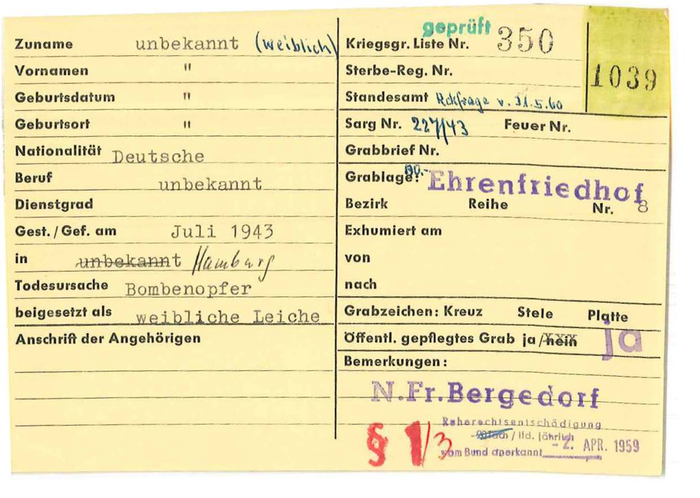 Zuname unbekannt (weiblich)
Vornamen "
Geburtsdatum "
Geburtsort "
Nationalität Deutsche
Beruf unbekannt
Dienstgrad
Gest./Gef. am Juli 1943
in unbekannt Hamburg
Todesursache Bombenopfer
beigesetzt als weibliche Leiche
Anschrift der Angehörigen
geprüft
Kriegsgr. Liste Nr. 350
1039
Sterbe-Reg. Nr.
Standesamt Rckfrage v. 31.5.60
Sarg Nr. 227/43 Feuer Nr.
Grabbrief Nr.
Grablage: Ehrenfriedhof
Bezirk Reihe Nr. 8
Exhumiert am
von
nach
Grabzeichen: Kreuz Stele Platte
Öffentl. gepflegtes Grab ja/nein ja
Bemerkungen:
N.Fr.Bergedorf
Ruherechtsentschädigung
/ lfd. jährlich
vom Bund anerkannt - 2. APR. 1959
§ 1/3